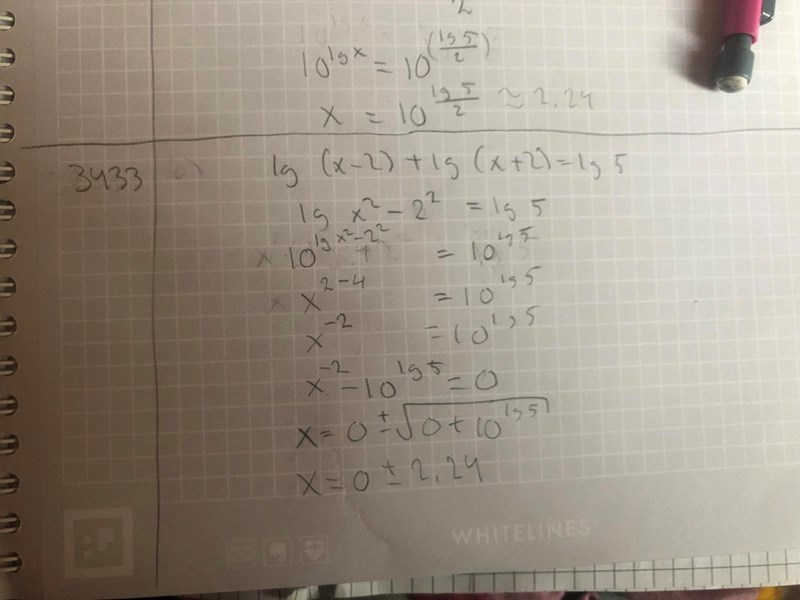 2
10^{lg x} = 10^{(\frac{lg 5}{2})}
x = 10^{\frac{lg 5}{2}} ≃ 2.24
3433 lg (x-2) + lg (x+2) = lg 5
lg x^2 - 2^2 = lg 5
10^{lg x^2 - 2^2} = 10^{lg 5}
x^{2-4} = 10^{lg 5}
x^{-2} = 10^{lg 5}
x^{-2} - 10^{lg 5} = 0
x = 0 ± \sqrt{0 + 10^{lg 5}}
x = 0 ± 2.24
WHITELINES